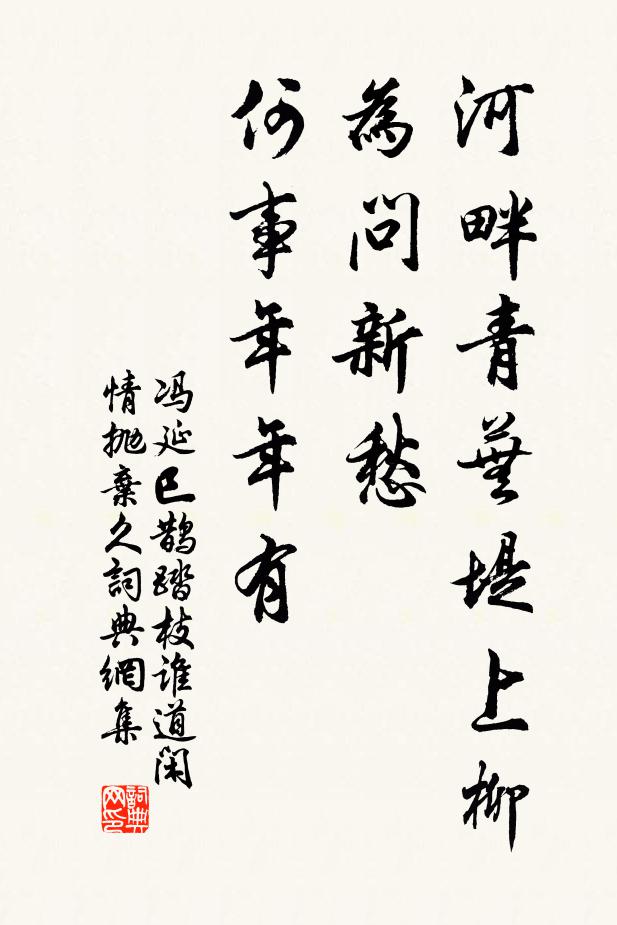 河畔青蕪堤上柳
為問新愁
何事年年有
冯延巳鵲踏枝谁道閑
情抛棄久詞典網集
詞典
网印